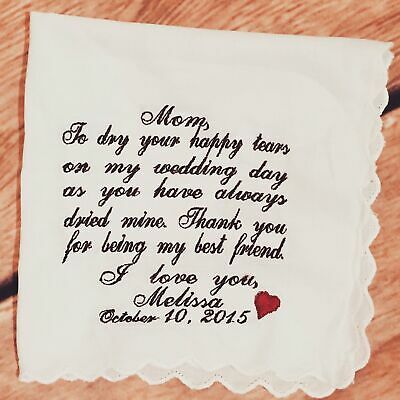 Mom,
To dry your happy tears
on my wedding day
as you have always
dried mine. Thank you
for being my best friend.
I love you,
Melissa
October 10, 2015